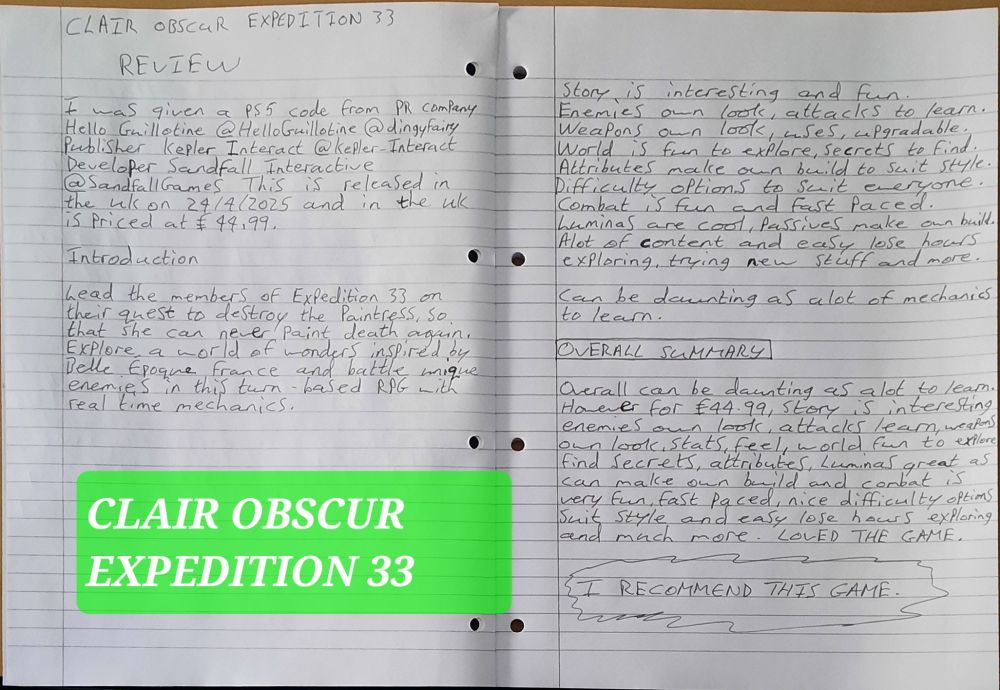 CLAIR OBSCUR EXPEDITION 33
REVIEW
I was given a PS5 code from PR company
Hello Guillotine @HelloGuillotine @dingyfairy
Publisher Kepler Interact @kepler-Interact
Developer Sandfall Interactive
@SandfallGames This is released in
the uk on 24/4/2025 and in the uk
is priced at £44.99.
Introduction
Lead the members of Expedition 33 on
their quest to destroy the Paintress, so
that she can never paint death again.
Explore a world of wonders inspired by
Belle Epoque France and battle unique
enemies in this turn-based RPG with
real time mechanics.
CLAIR OBSCUR
EXPEDITION 33
Story is interesting and fun.
Enemies own look, attacks to learn.
Weapons own look, uses, upgradable.
World is fun to explore, secrets to find.
Attributes make own build to suit style.
Difficulty options to suit everyone.
Combat is fun and fast paced.
Luminas are cool, passives make own build.
Alot of content and easy lose hours
exploring, trying new stuff and more.
Can be daunting as alot of mechanics
to learn.
OVERALL SUMMARY
Overall can be daunting as alot to learn.
However for £44.99, story is interesting
enemies own look, attacks learn, weapons
own look, stats, feel, world fun to explore
find secrets, attributes, Luminas great as
can make own build and combat is
very fun, fast paced, nice difficulty options
suit style and easy lose hours exploring
and much more. LOVED THE GAME.
I RECOMMEND THIS GAME.